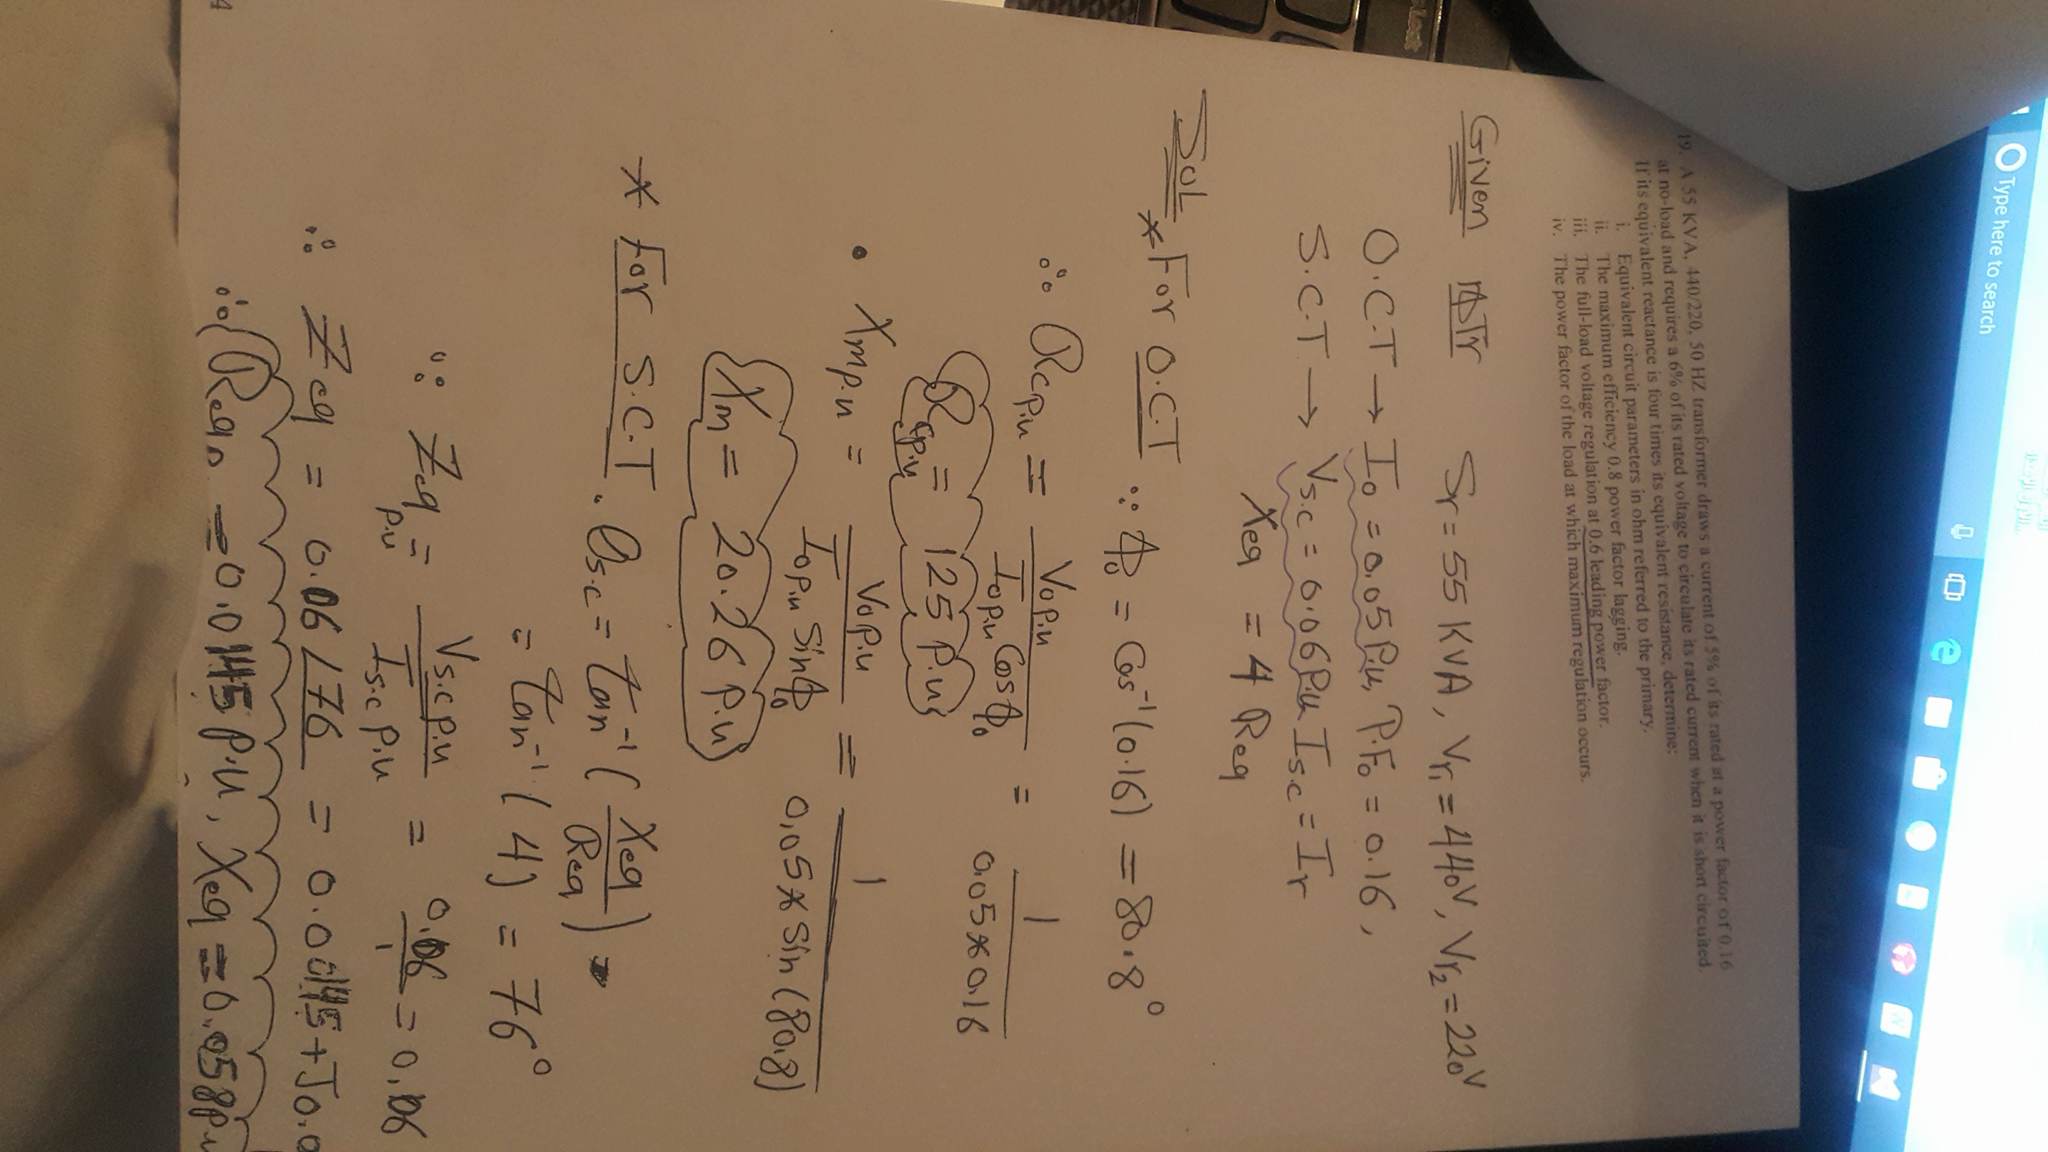 Type here to search
19. A 55 KVA, 440/220, 50 HZ transformer draws a current of 5% of its rated at a power factor of 0.16
at no-load and requires a 6% of its rated voltage to circulate its rated current when it is short circuited.
If its equivalent reactance is four times its equivalent resistance, determine:
i. Equivalent circuit parameters in ohm referred to the primary.
ii. The maximum efficiency 0.8 power factor lagging.
iii. The full-load voltage regulation at 0.6 leading power factor.
iv. The power factor of the load at which maximum regulation occurs.
Given Tr Sr = 55 KVA, Vr1 = 440V, Vr2 = 220V
O.C.T → Io = 0.05 P.u, P.Fo = 0.16,
S.C.T → Vs.c = 0.06 P.u Is.c = Ir
Xeq = 4 Req
SOL
* For O.C.T ∵ ϕo = Cos⁻¹(0.16) = 80.8°
∴ Rcp.u = Vop.u / Iop.u Cosϕo = 1 / 0.05*0.16
Rcp.u = 125 P.u
• Xmp.u = Vop.u / Iop.u sinϕo = 1 / 0.05*sin(80.8)
Xm = 20.26 P.u
* For S.C.T. θs.c = tan⁻¹(Xeq / Req)
= tan⁻¹(4) = 76°
∵ Zeq p.u = Vs.c p.u / Is.c p.u = 0.06 / 1 = 0.06
∴ Zeq = 0.06 ∠76 = 0.0145 + J0.0
∴ Req = 0.0145 P.u, Xeq = 0.058 p.u
4